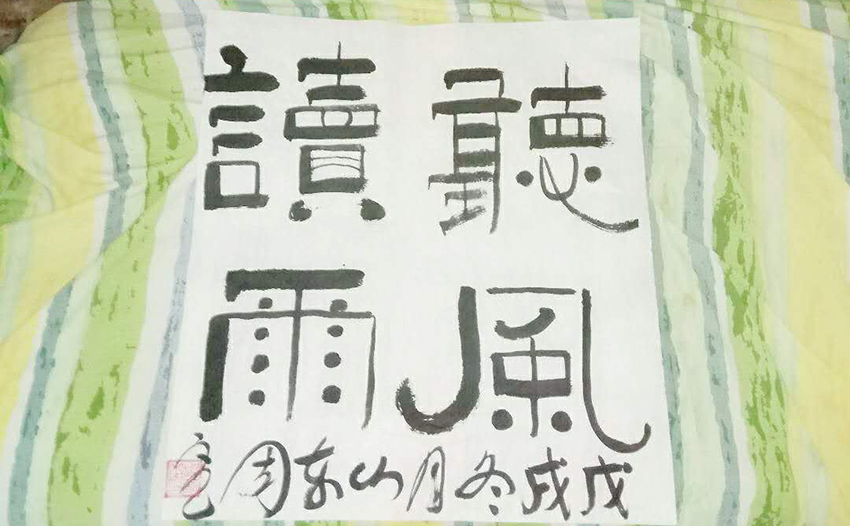 聽風
讀雨
戊戌冬月山东周